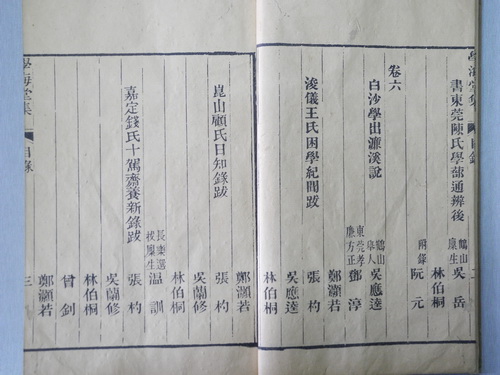 書東莞陳氏學蔀通辨後
鶴山廩生 吳岳
林伯桐
附錄 阮元
卷六
白沙學出濂溪說
鶴山舉人 吳應逵
東莞孝廉方正 鄧淳
鄭灝若
浚儀王氏困學紀聞跋
張杓
吳應逵
林伯桐
崑山顧氏日知錄跋
鄭灝若
張杓
吳蘭修
林伯桐
嘉定錢氏十駕齋養新錄跋
長樂選拔廩生 溫訓
張杓
吳蘭修
林伯桐
曾釗
鄭灝若
學海堂集 目錄 三